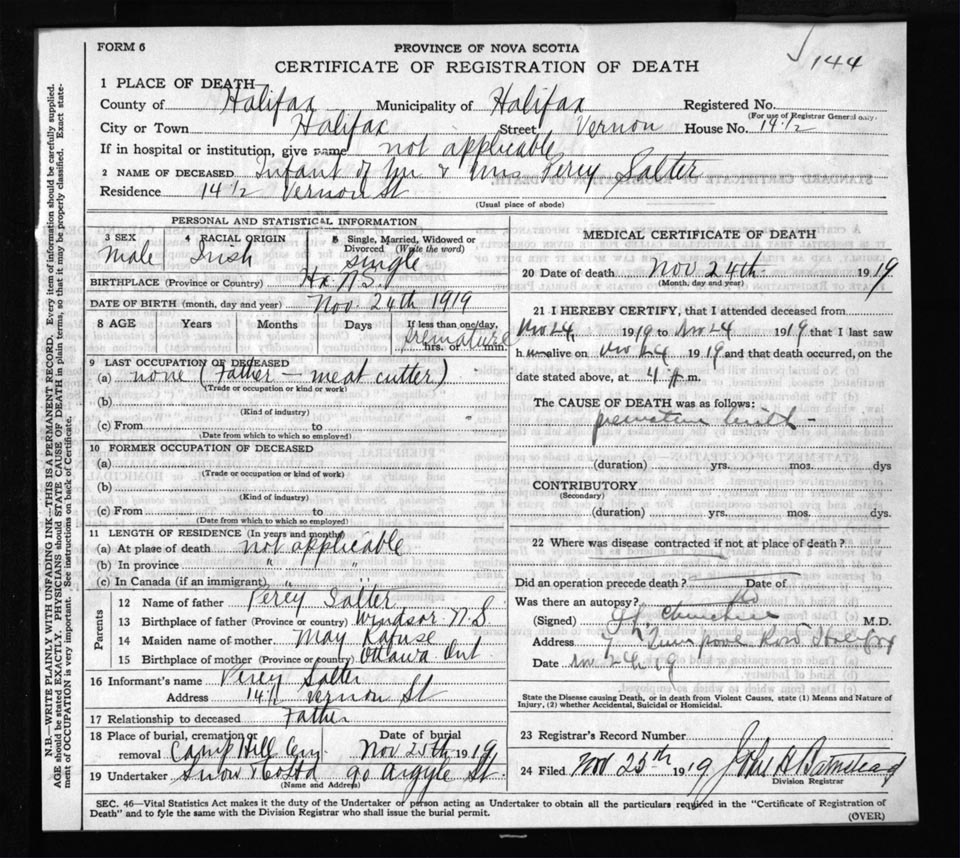 FORM 6
PROVINCE OF NOVA SCOTIA
144
CERTIFICATE OF REGISTRATION OF DEATH
1 PLACE OF DEATH
County of Halifax Municipality of Halifax Registered No.
(For use of Registrar General only.
City or Town Halifax Street Vernon House No. 14 1/2
If in hospital or institution, give name not applicable
2 NAME OF DECEASED Infant of Mr & Mrs Percy Salter
Residence 14 1/2 Vernon St
(Usual place of abode)
PERSONAL AND STATISTICAL INFORMATION
3 SEX 4 RACIAL ORIGIN 5 Single, Married, Widowed or Divorced (Write the word)
Male Irish single
BIRTHPLACE (Province or Country) Hx N.S.
DATE OF BIRTH (month, day and year) Nov. 24th 1919
8 AGE Years Months Days If less than one/day,
premature
hrs. or min.
9 LAST OCCUPATION OF DECEASED
(a) none (Father - meat cutter)
(Trade or occupation or kind or work)
(b)
(Kind of industry)
(c) From to
(Date from which to which so employed)
10 FORMER OCCUPATION OF DECEASED
(a)
(Trade or occupation or kind of work)
(b)
(Kind of industry)
(c) From to
(Date from which to which so employed)
11 LENGTH OF RESIDENCE (In years and months)
(a) At place of death not applicable
(b) In province " "
(c) In Canada (if an immigrant) " "
Parents
12 Name of father Percy Salter
13 Birthplace of father (Province or country) Windsor N.S
14 Maiden name of mother May
15 Birthplace of mother (Province or country) Ottawa Ont
16 Informant's name Percy Salter
Address 14 1/2 Vernon St
17 Relationship to deceased Father
18 Place of burial, cremation or removal Date of burial
Camp Hill Cem Nov 25th 1919
19 Undertaker Snow & Co Ltd 90 Argyle St.
(Name and Address)
MEDICAL CERTIFICATE OF DEATH
20 Date of death Nov 24th 1919
(Month, day and year)
21 I HEREBY CERTIFY, that I attended deceased from
Nov 24 1919 to Nov 24 1919 that I last saw
h alive on Nov 24 1919 and that death occurred, on the
date stated above, at 4 m.
The CAUSE OF DEATH was as follows:
premature birth -
(duration) yrs. mos. dys
CONTRIBUTORY
(Secondary)
(duration) yrs. mos. dys.
22 Where was disease contracted if not at place of death?
Did an operation precede death? Date of
Was there an autopsy? No
(Signed) Churchill M.D.
Address Liverpool Row Halifax
Date Nov 24 19
State the Disease causing Death, or in death from Violent Causes, state (1) Means and Nature of
Injury, (2) whether Accidental, Suicidal or Homicidal.
23 Registrar's Record Number
24 Filed Nov 25th 1919 John A Barnstead
Division Registrar
SEC. 46—Vital Statistics Act makes it the duty of the Undertaker or person acting as Undertaker to obtain all the particulars required in the "Certificate of Registration of
Death" and to fyle the same with the Division Registrar who shall issue the burial permit.
(OVER)
N.B.—WRITE PLAINLY WITH UNFADING INK—THIS IS A PERMANENT RECORD. Every item of information should be carefully supplied.
AGE should be stated EXACTLY. PHYSICIANS should STATE CAUSE OF DEATH in plain terms, so that it may be properly classified. Exact state-
ment of OCCUPATION is very important. See instructions on back of Certificate.